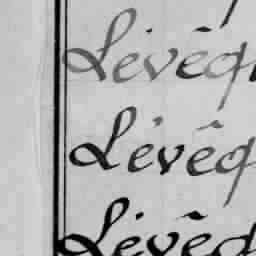 Lévêq
Lévêq
Lévêq